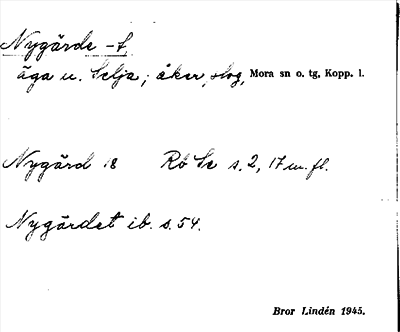 Nygärde -t
äga u. Selja; åker, slog, Mora sn o. tg, Kopp. l.
Nygärd 18 Rö Se s. 2, 17 m. fl.
Nygärdet ib. s. 54.
Bror Lindén 1945.